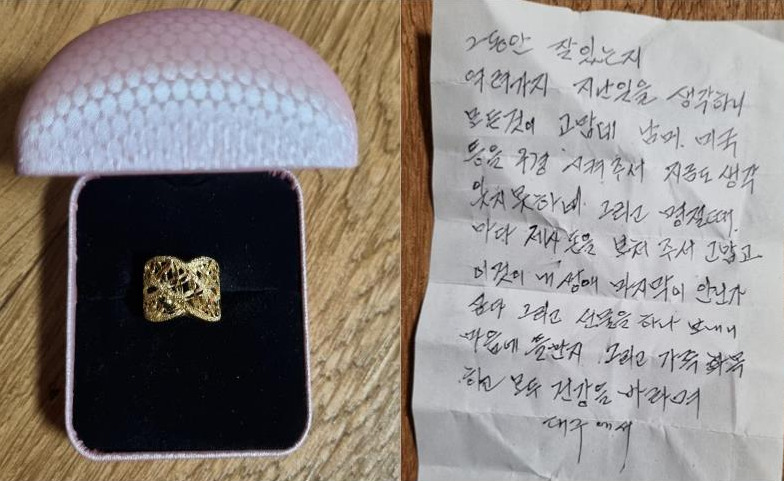 그동안 잘있는지
여러가지 지난일을 생각하니
모든것이 고맙네 남미. 미국
등을 구경 시켜주서 지금도 생각
잊지못하네. 그리고 명절때.
마다 제사 돈을 보처 주서 고맙고
이것이 내 삶애 마지막이 안인가
싶다 그리고 선물을 하나 보내니
마음에 들란지 그리고 가족 화목
하고 모두 건강을 바라며
대구에서